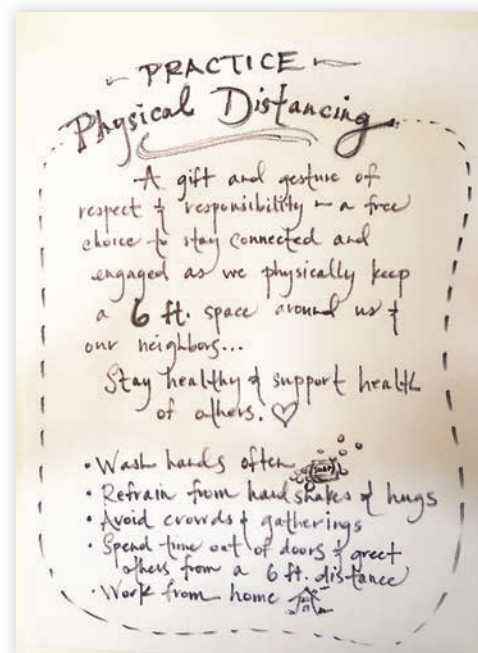 PRACTICE
Physical Distancing
A gift and gesture of
respect & responsibility – a free
choice to stay connected and
engaged as we physically keep
a 6 ft. space around us &
our neighbors...
Stay healthy & support health
of others. ♡
• Wash hands often SOAP
• Refrain from handshakes & hugs
• Avoid crowds & gatherings
• Spend time out of doors & greet
others from a 6 ft. distance
• Work from home